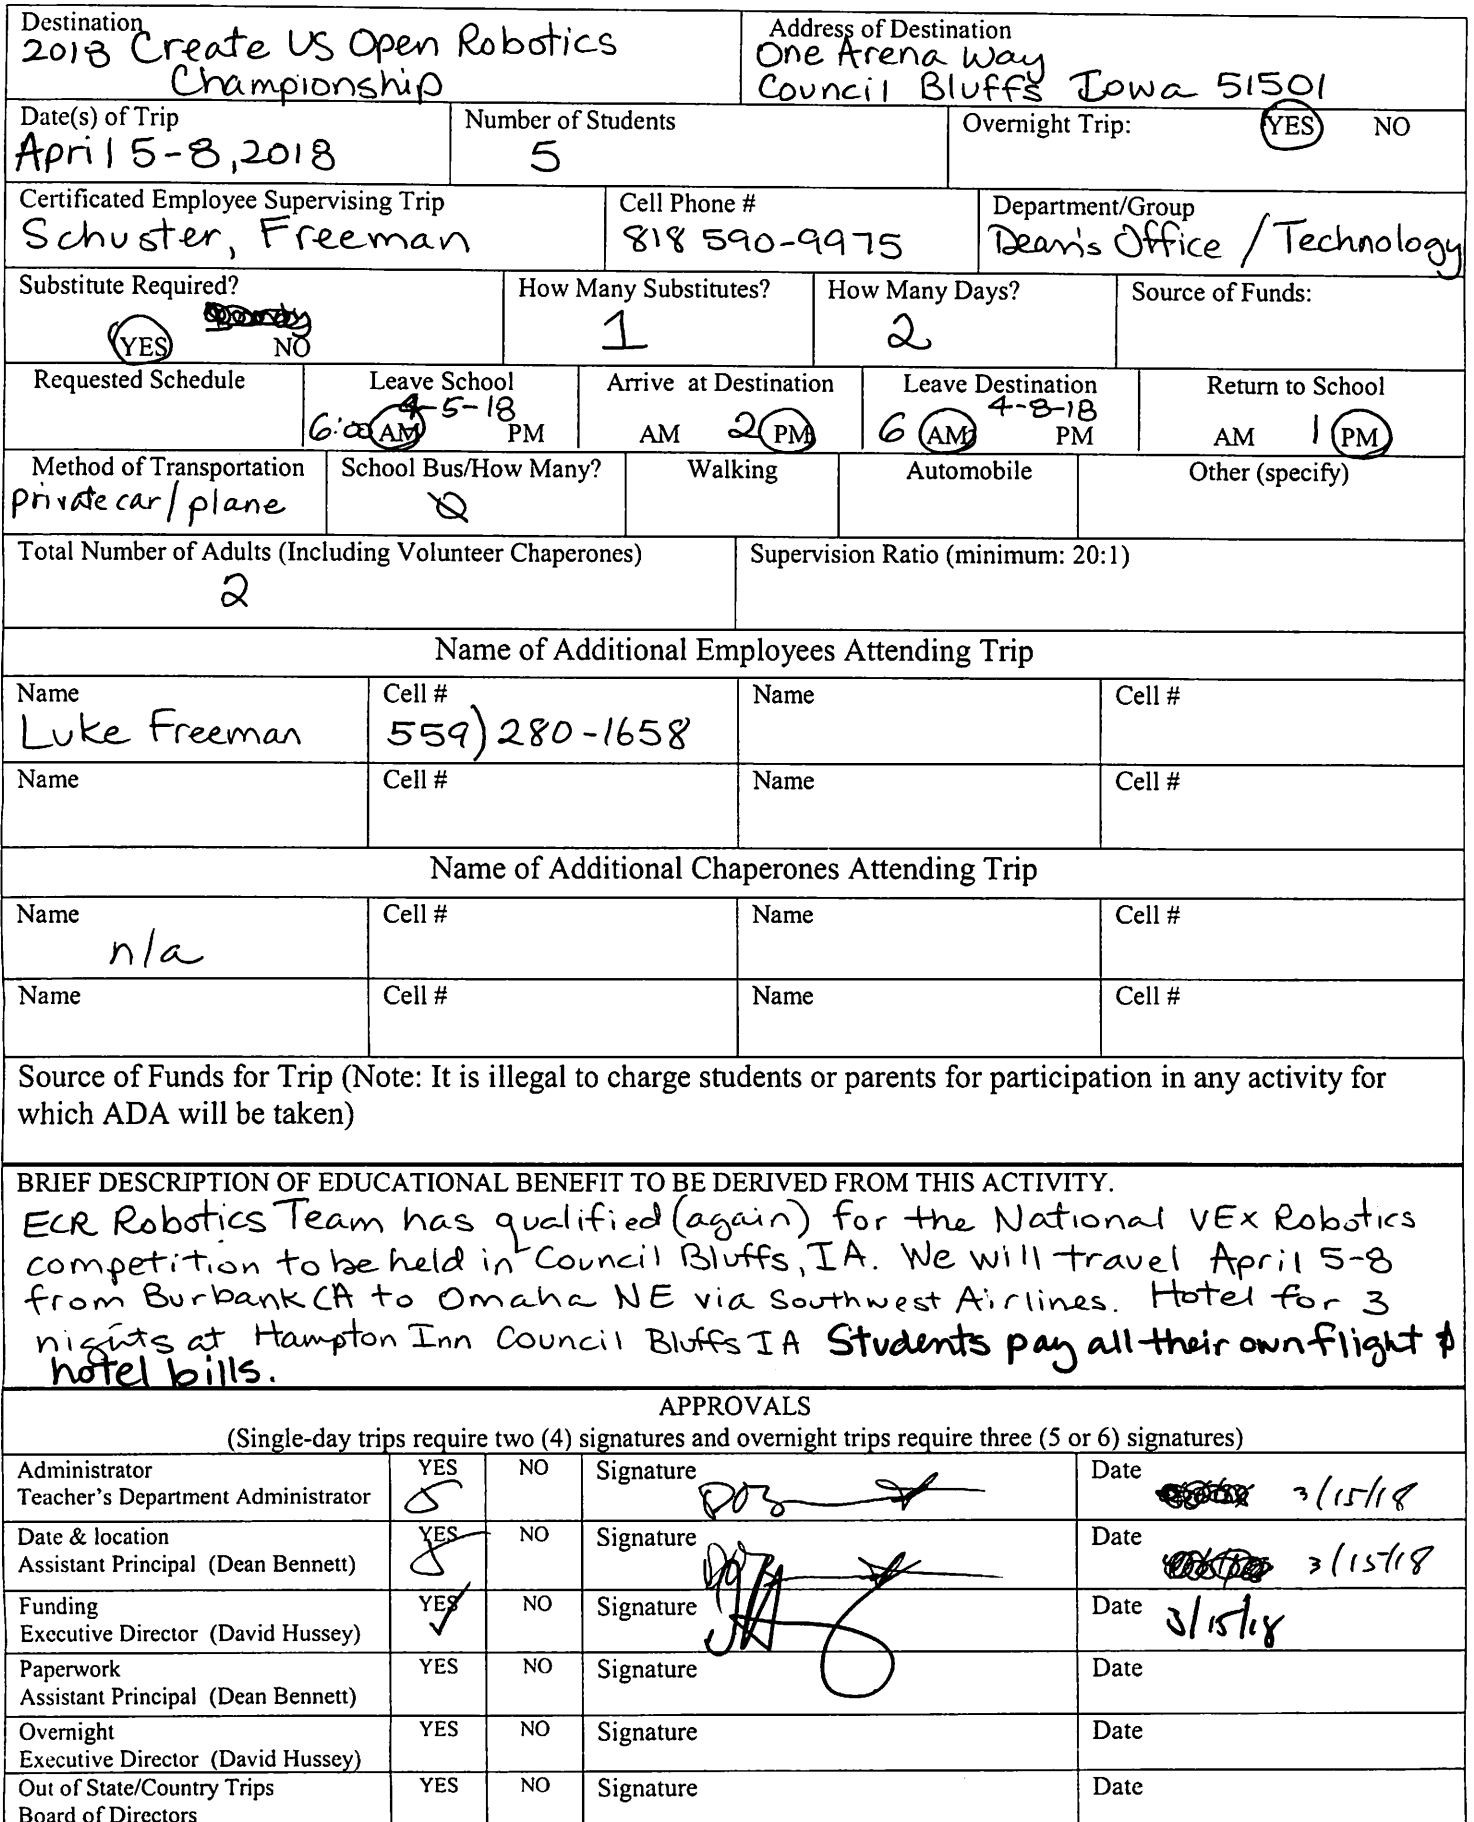 Destination
2018 Create US Open Robotics
Championship
Address of Destination
One Arena Way
Council Bluffs Iowa 51501
Date(s) of Trip
April 5-8, 2018
Number of Students
5
Overnight Trip: YES NO
Certificated Employee Supervising Trip
Schuster, Freeman
Cell Phone #
818 590-9975
Department/Group
Dean's Office / Technology
Substitute Required?
YES NO
How Many Substitutes?
1
How Many Days?
2
Source of Funds:
Requested Schedule
Leave School
4-5-18
6:00 AM PM
Arrive at Destination
AM 2 PM
Leave Destination
4-8-18
6 AM PM
Return to School
AM 1 PM
Method of Transportation
private car/plane
School Bus/How Many?
0
Walking
Automobile
Other (specify)
Total Number of Adults (Including Volunteer Chaperones)
2
Supervision Ratio (minimum: 20:1)
Name of Additional Employees Attending Trip
Name
Luke Freeman
Cell #
559) 280-1658
Name
Cell #
Name
Cell #
Name
Cell #
Name of Additional Chaperones Attending Trip
Name
n/a
Cell #
Name
Cell #
Name
Cell #
Name
Cell #
Source of Funds for Trip (Note: It is illegal to charge students or parents for participation in any activity for
which ADA will be taken)
BRIEF DESCRIPTION OF EDUCATIONAL BENEFIT TO BE DERIVED FROM THIS ACTIVITY.
ECR Robotics Team has qualified (again) for the National VEX Robotics
competition to be held in Council Bluffs, IA. We will travel April 5-8
from Burbank CA to Omaha NE via Southwest Airlines. Hotel for 3
nights at Hampton Inn Council Bluffs IA Students pay all their own flight &
hotel bills.
APPROVALS
(Single-day trips require two (4) signatures and overnight trips require three (5 or 6) signatures)
Administrator
Teacher's Department Administrator
YES NO
Signature
Date 3/15/18
Date & location
Assistant Principal (Dean Bennett)
YES NO
Signature
Date 3/15/18
Funding
Executive Director (David Hussey)
YES NO
Signature
Date 3/15/18
Paperwork
Assistant Principal (Dean Bennett)
YES NO
Signature
Date
Overnight
Executive Director (David Hussey)
YES NO
Signature
Date
Out of State/Country Trips
Board of Directors
YES NO
Signature
Date